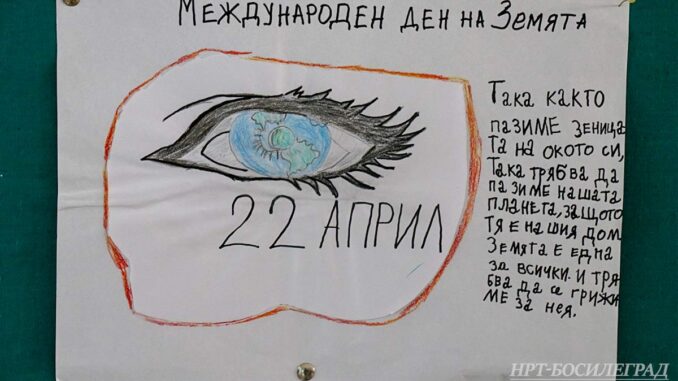 Международен ден на Земята
22 АПРИЛ
Така както
пазиме зеница
та на окото си,
Така трябва да
пазиме нашата
планета, защото
тя е нашия дом
Земята е една
за всички. И тря
бва да се грижи
ме за нея.
НРТ-БОСИЛЕГРАД